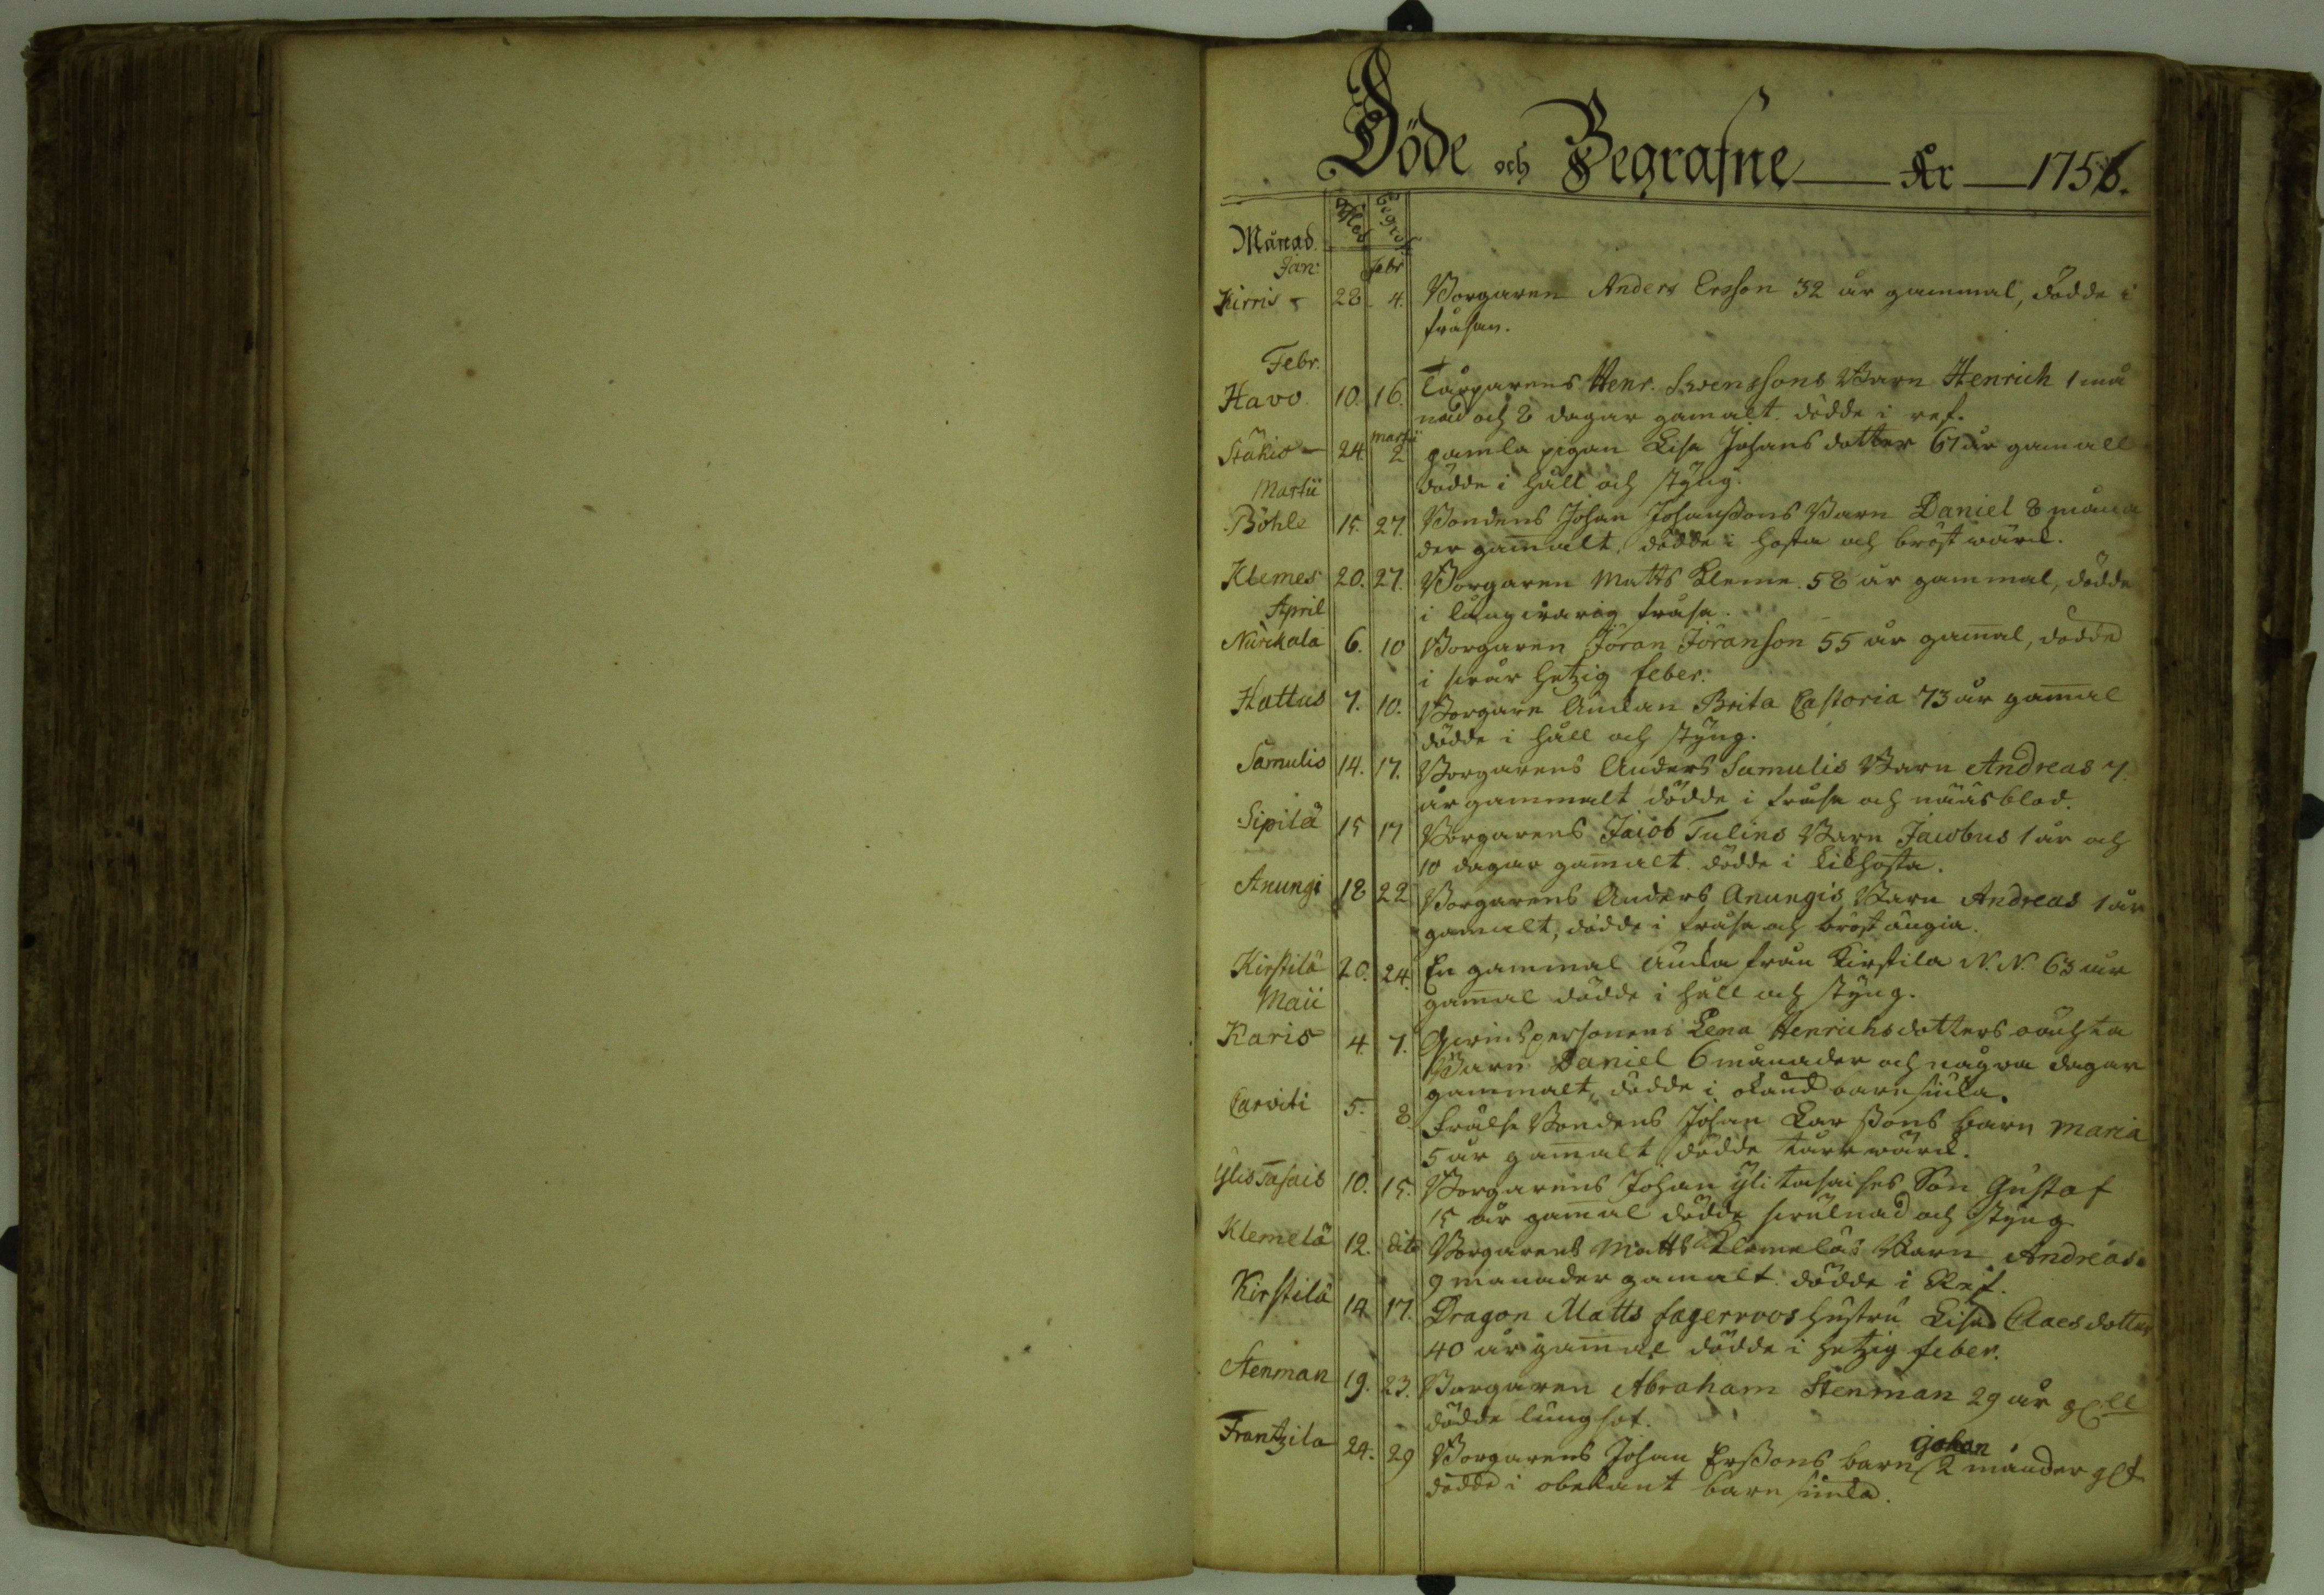 Döde och Begrafne År 1756.
Månad. Död Begrof
Jan: Febr
Kirris 28 4. Borgaren Anders Ersson 32 år gammal, dödde i
fråsan.
Febr.
Havo. 10. 16. Torparens Henr. Svenssons Barn Henrich 1 må
nad och 8 dagar gamalt. dödde i ref.
Stäkiö 24 Martii 2 gamla pigan Lisa Johans dotter 67 år gamall
dödde i håll och styng.
Martii
Böhle 15. 27. Bondens Johan Johanssons Barn Daniel 8 måna
der gamalt, dödde i hosta och bröstwärk.
Klemes 20. 27. Borgaren Matts Kleme 58 år gammal, dödde
i långwarig fråsa.
April
Nurckala 6. 10 Borgaren Jöran Jöranson 55 år gamal, dödde
i swår hetzig feber.
Hattus 7. 10. Borgare Änckan Brita Castoria 73 år gamal
dödde i håll och styng.
Samulis 14. 17. Borgarens Anders Samulis Barn Andreas 7.
år gammalt dödde i fråsa och näasblod.
Sipilä 15 17 Borgarens Jacob Tulins Barn Jacobus 1 år och
10 dagar gamalt. dödde i kikhosta.
Anungi 18 22 Borgarens Anders Anungis Barn Andreas 1 år
gamalt, dödde i fråsa och bröst ängia.
Kirstilä 20. 24. En gammal Änka från Kirstila N.N. 63 år
gamal dödde i håll och styng.
Maii
Karis 4. 7. Qwinspersonens Lena Henrichsdotters oächta
Barn Daniel 6 månader och några dagar
gammalt, dödde i okänd barnsiuka.
Carviti 5. 8. Frälse Bondens Johan Larssons barn Maria
5 år gamalt dödde torrwärk.
Ylistasais 10. 15. Borgarens Johan Ylitasaises Son Gustaf
15 år gamal dödde swulnad och styng
Klemelä 12. dito Borgarens Matts Klemeläs Barn Andreas.
9 manader gamalt. dödde i Ref.
Kirstilä 14 17. Dragon Matts Fagerroos hustru Lisa Claesdotter
40 år gamal dödde i hetzig feber.
Stenman 19. 23. Borgaren Abraham Stenman 29 år gll
dödde lungsot.
Frantzila 24. 29 Borgarens Johan Erssons barn Johan 2 månder glt
dödde i obekant barnsiuka.